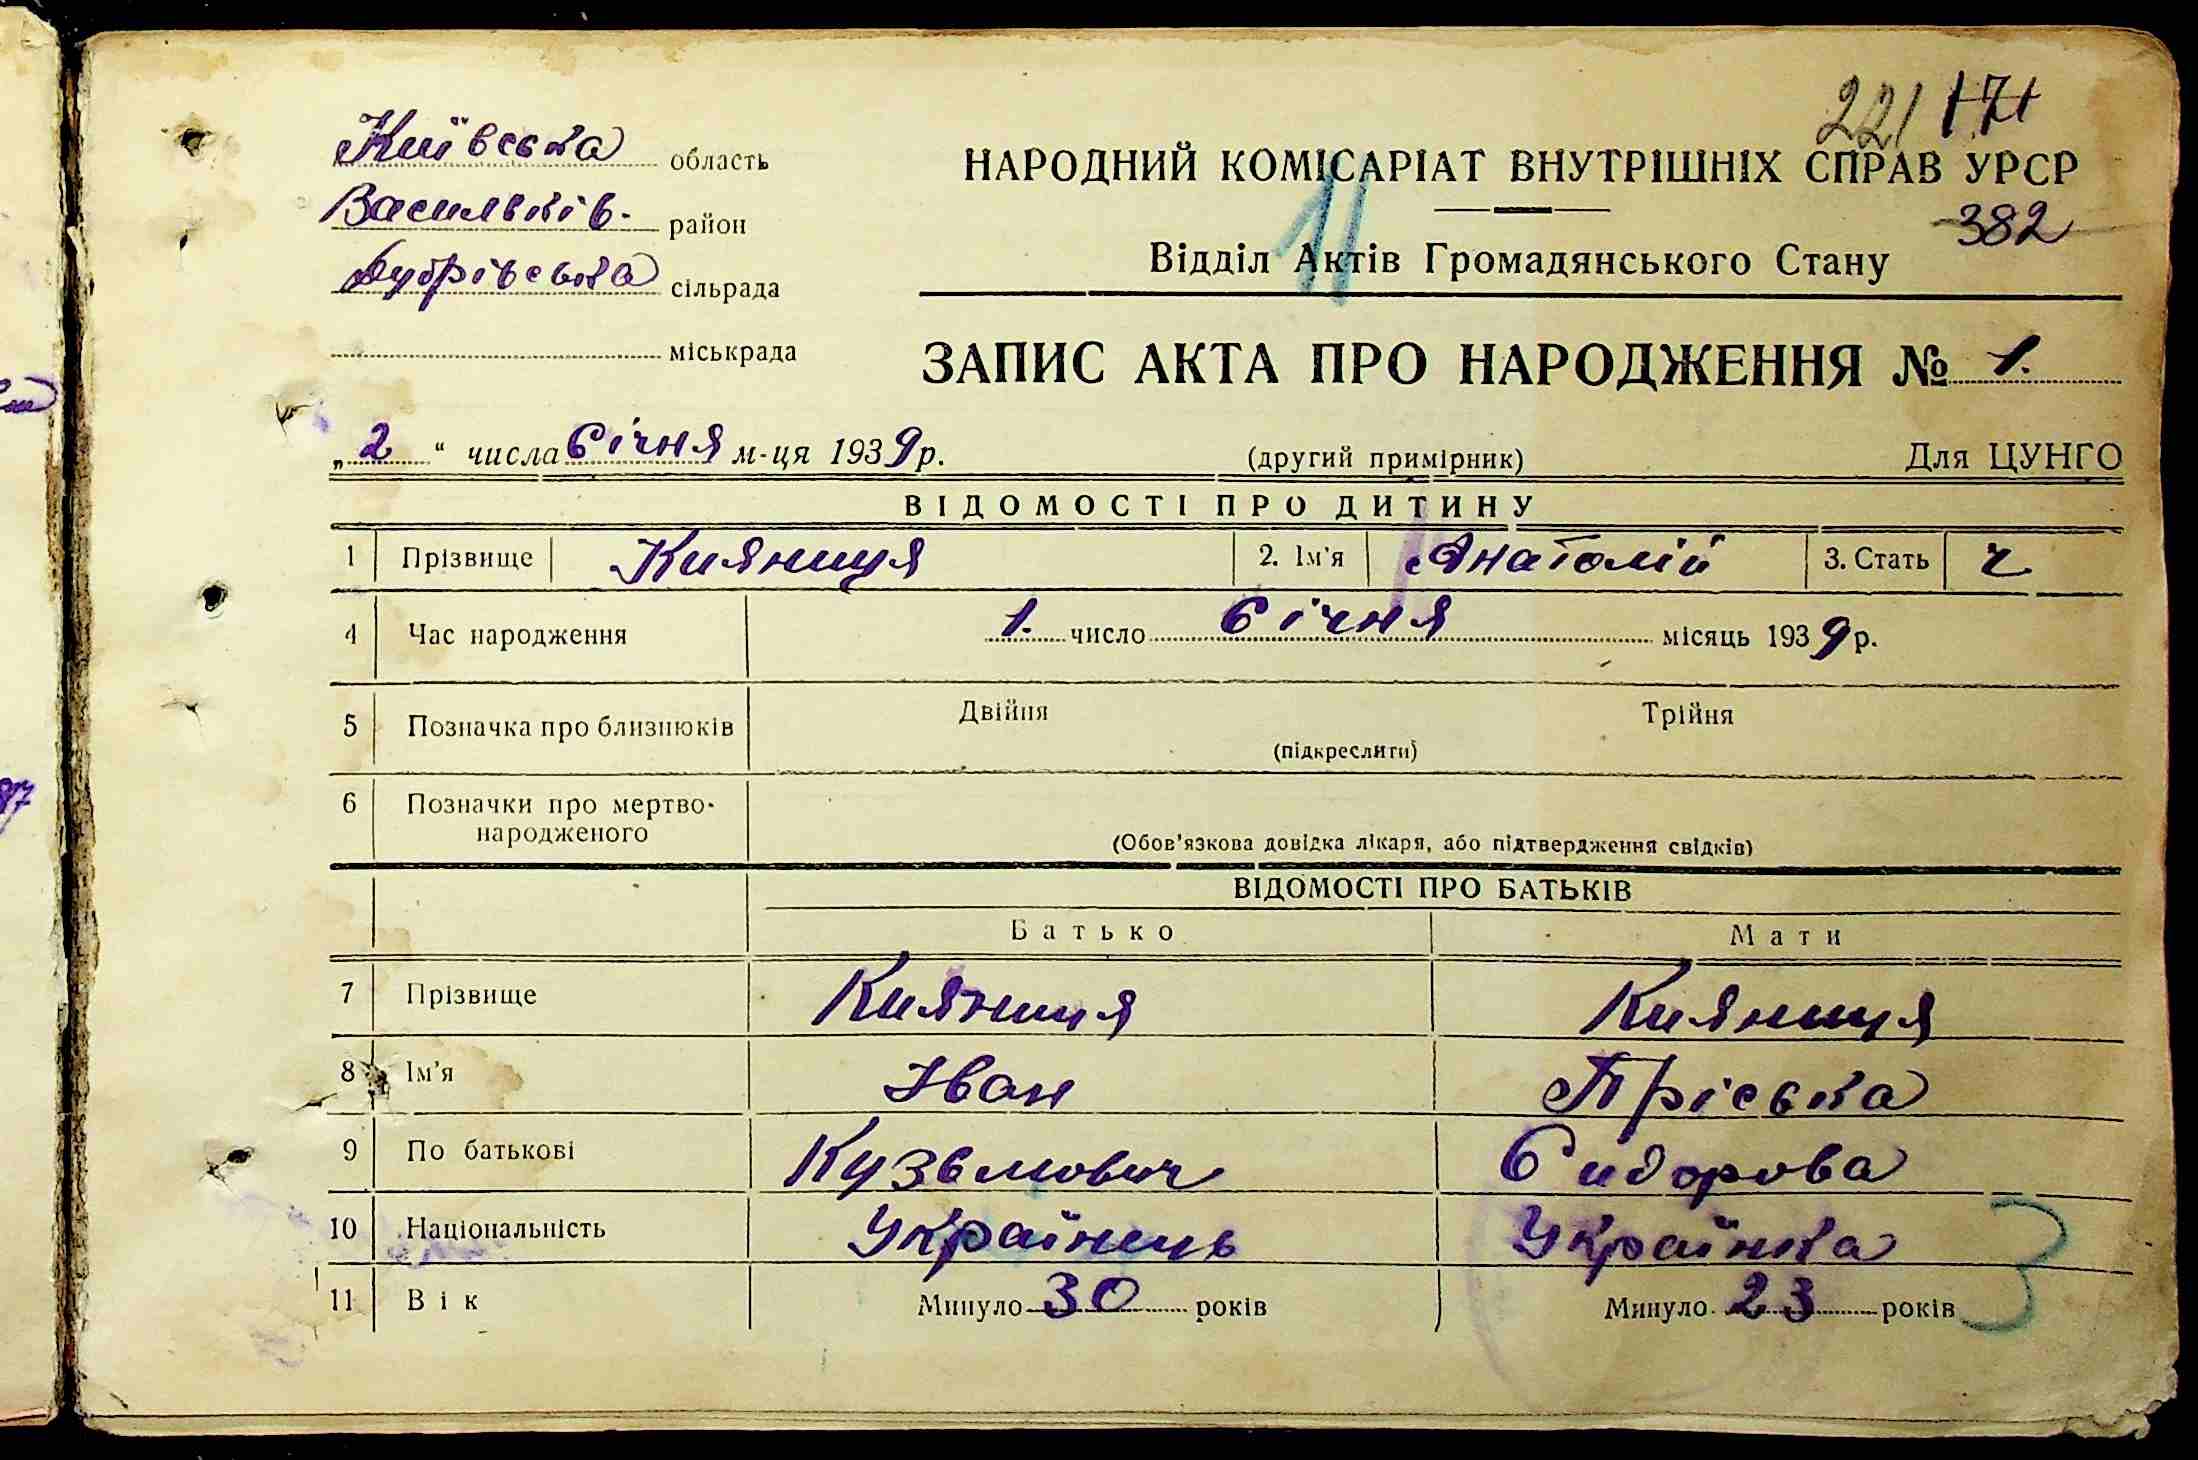 221 171
Київська область
НАРОДНИЙ КОМІСАРІАТ ВНУТРІШНІХ СПРАВ УРСР
Васильків. район
382
11
Відділ Актів Громадянського Стану
Дубрівська сільрада
міськрада
ЗАПИС АКТА ПРО НАРОДЖЕННЯ № 1.
„2“ числа Січня м-ця 1939 р. (другий примірник) Для ЦУНГО
ВІДОМОСТІ ПРО ДИТИНУ
1 Прізвище Кияниця 2. Ім'я Анатолій 3. Стать ч
4 Час народження 1. число Січня місяць 1939 р.
5 Позначка про близнюків Двійня Трійня
(підкреслити)
6 Позначки про мертво-
народженого
(Обов'язкова довідка лікаря, або підтвердження свідків)
ВІДОМОСТІ ПРО БАТЬКІВ
Батько Мати
7 Прізвище Кияниця Кияниця
8 Ім'я Іван Пріська
9 По батькові Кузьмович Сидорова
10 Національність Українець Українка
11 Вік Минуло 30 років Минуло 23 років
3
87